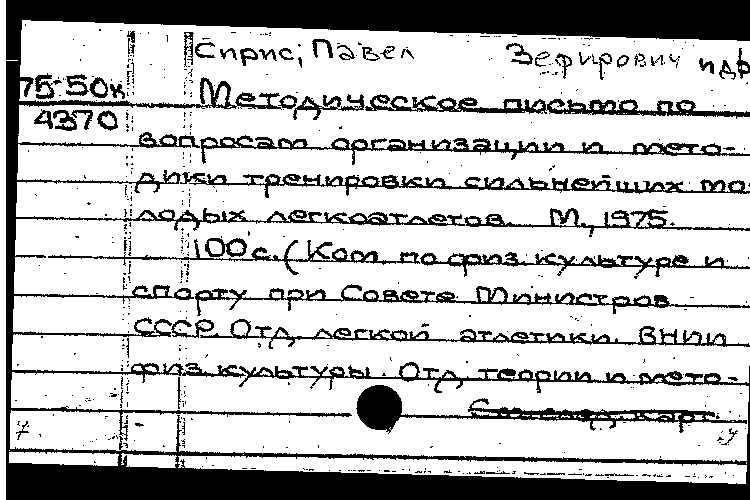 Сирис, Павел Зефирович и др
75-50к
4370
Методическое письмо по
вопросам организации и мето-
дики тренировки сильнейших мо-
лодых легкоатлетов. М., 1975.
100с. (Ком. по физ. культуре и
спорту при Совете Министров
СССР. Отд. легкой атлетики. ВНИИ
физ. культуры. Отд. теории и мето-